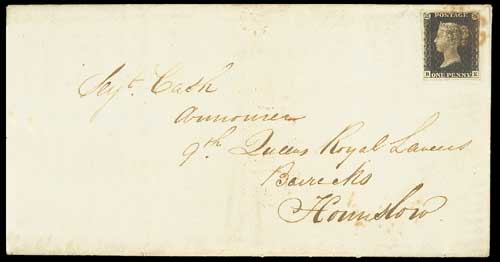 POSTAGE
ONE PENNY
Serjt. Cash
Armourer
9th Queens Royal Lancers
Barracks
Hounslow.